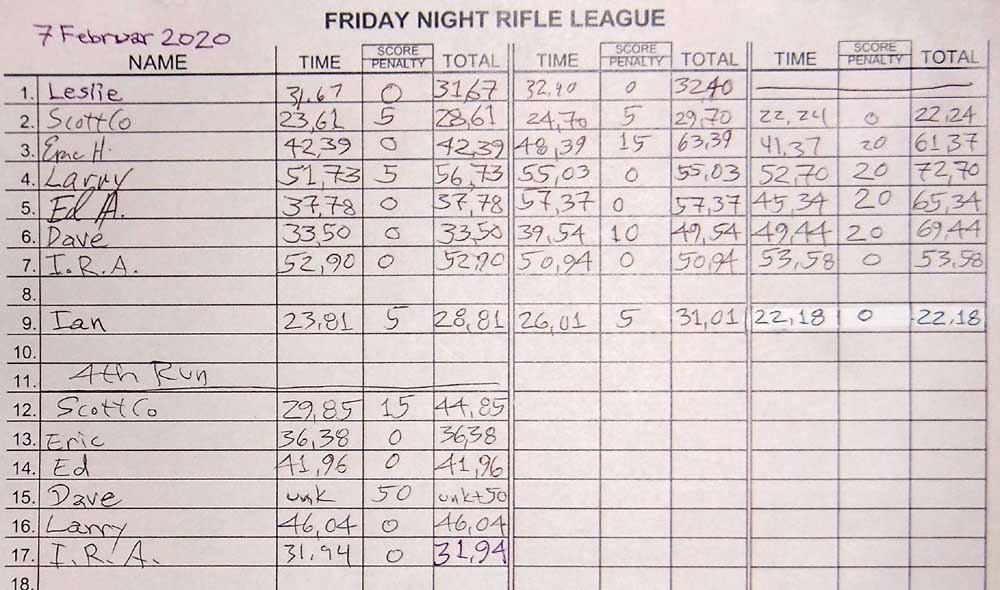 FRIDAY NIGHT RIFLE LEAGUE
7 Februar 2020
NAME TIME SCORE PENALTY TOTAL TIME SCORE PENALTY TOTAL TIME SCORE PENALTY TOTAL
1. Leslie 31.67 0 31,67 32,40 0 32,40
2. ScottCo 23,61 5 28,61 24,70 5 29,70 22,24 0 22,24
3. Eric H. 42,39 0 42,39 48,39 15 63,39 41,37 20 61,37
4. Larry 51,73 5 56,73 55,03 0 55,03 52,70 20 72,70
5. Ed A. 37,78 0 37,78 57,37 0 57,37 45,34 20 65,34
6. Dave 33,50 0 33,50 39,54 10 49,54 49,44 20 69,44
7. I.R.A. 52,90 0 52,90 50,94 0 50,94 53,58 0 53,58
8.
9. Ian 23,81 5 28,81 26,01 5 31,01 22,18 0 22,18
10.
11. 4th Run
12. ScottCo 29,85 15 44,85
13. Eric 36,38 0 36,38
14. Ed 41,96 0 41,96
15. Dave unk 50 unk+50
16. Larry 46,04 0 46,04
17. I.R.A. 31,94 0 31,94
18.